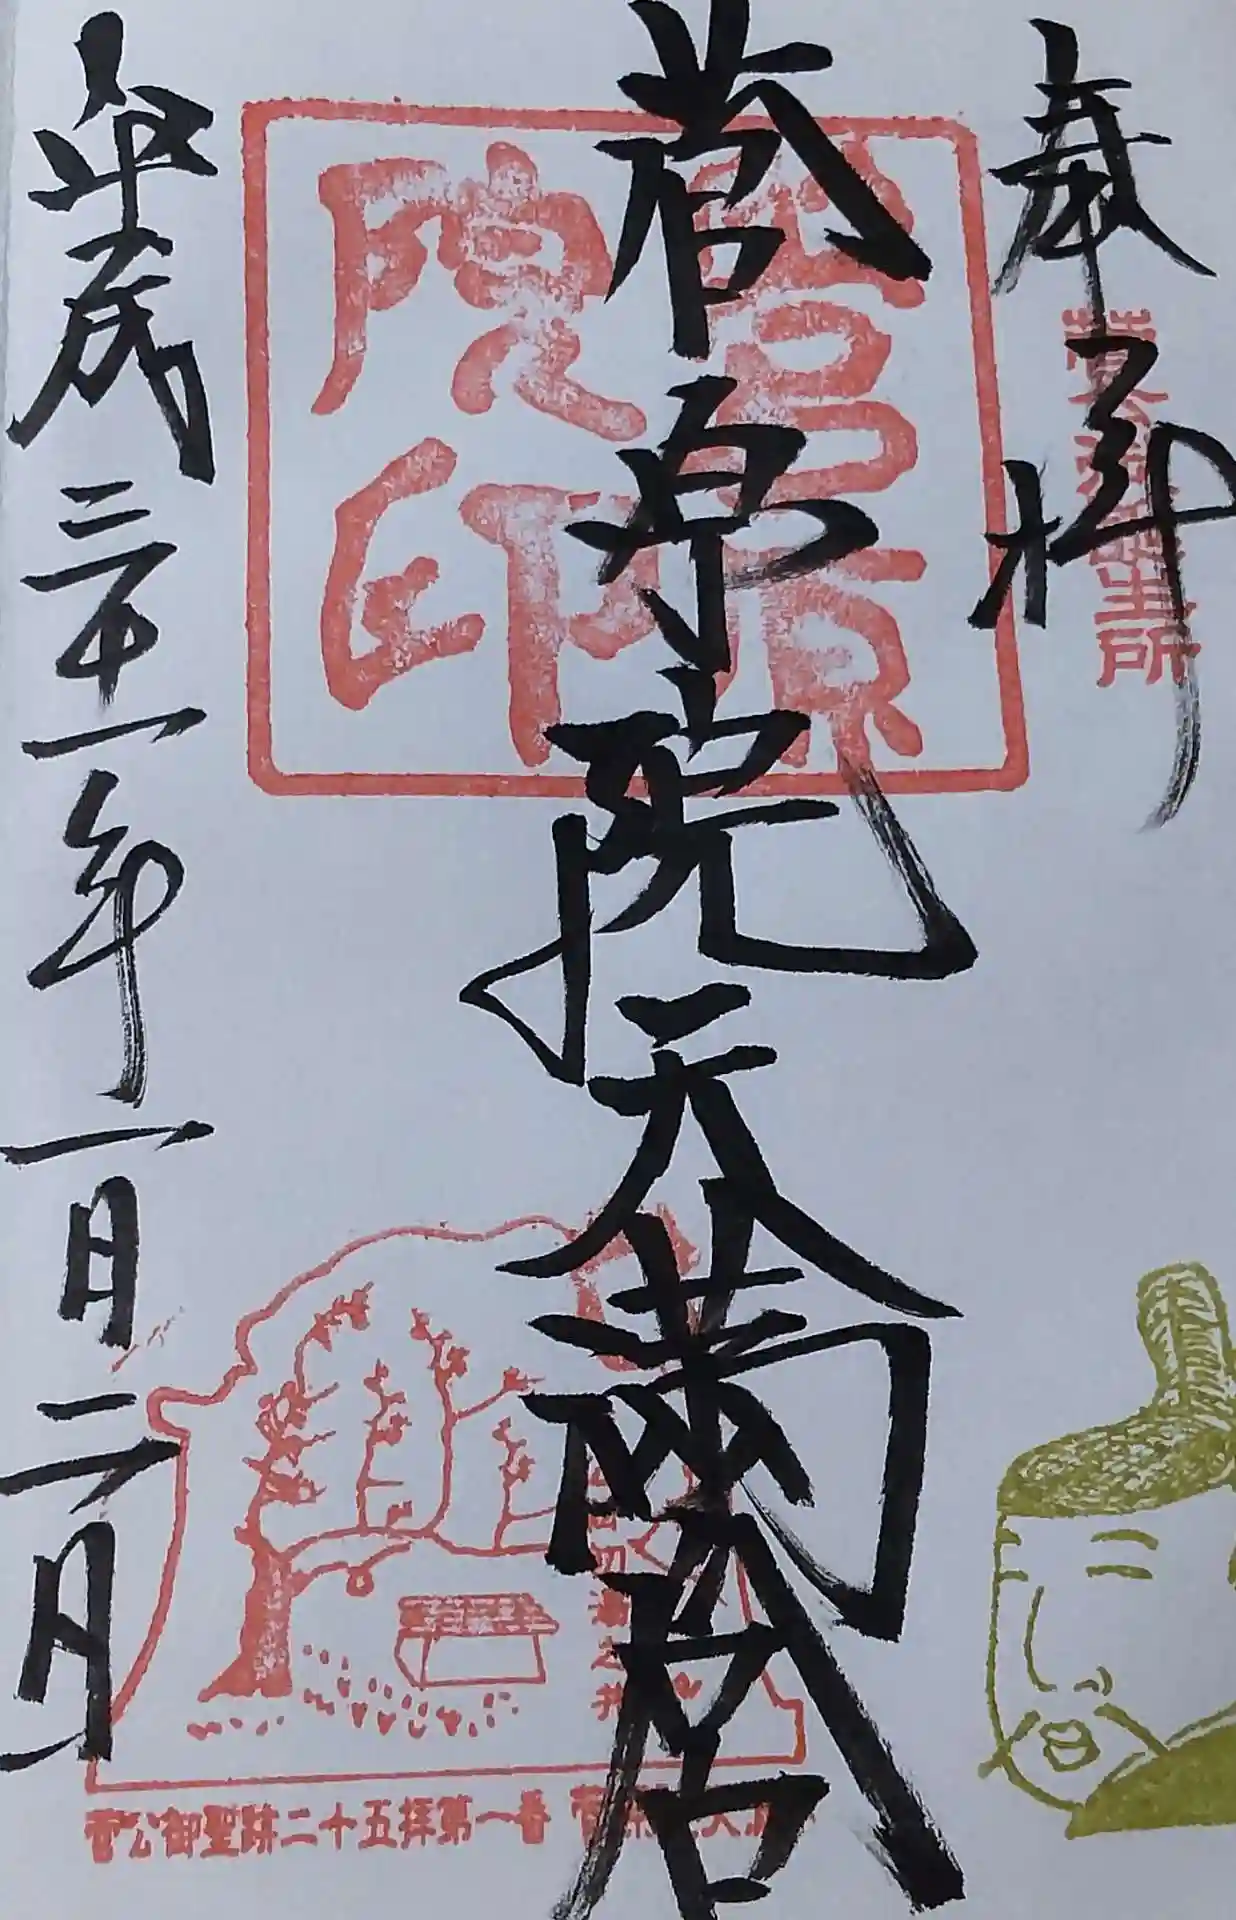 奉拝
菅公御誕生所
菅原院天満宮
菅原院印
平成三十一年一月二日
初湯之井
菅公御聖跡二十五拝第一番 菅原院天満